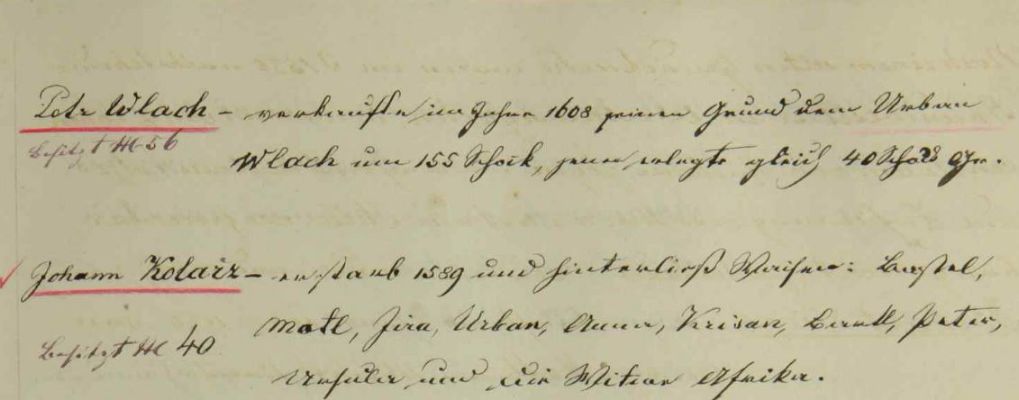 Petr Wlach – verkaufte im Jahre 1608 seinen Grund dem Urban
Besitzt № 56
Wlach um 155 Schock, jener erlegte gleich 40 Schock Gr.
Johann Kolarz – er starb 1589 und hinterließ Waisen: Bastel,
Matl, Jira, Urban, Anna, Krisan, Bartl, Peter,
Besitzt № 40
Ursula und die Witwe Afrika.